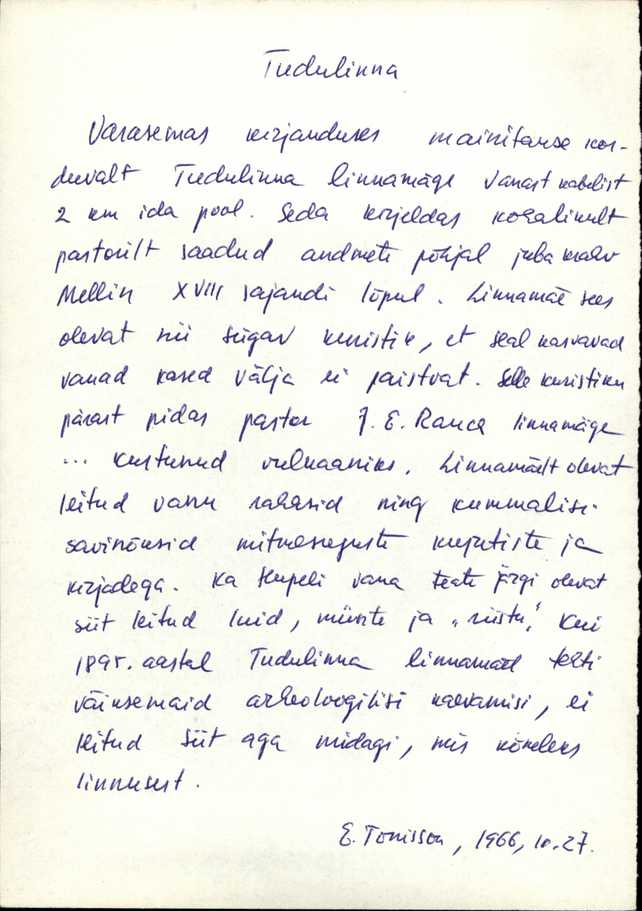 Tudulinna
Varasemas kirjanduses mainitakse kor-
duvalt Tudulinna linnamäge vanast kabelist
2 km ida pool. Seda kirjeldas kohalikult
pastorilt saadud andmete põhjal juba krahv
Mellin XVIII sajandi lõpul. Linnamäe sees
olevat nii sügav kuristik, et seal kasvavad
vanad kased välja ei paistvat. Selle kuristiku
pärast pidas pastor J. E. Rauca linnamäge
... kustunud vulkaaniks. Linnamäelt olevat
leitud vanu rahasid ning kummalisi
savinõusid mitmesuguste kujutiste ja
kirjadega. Ka Hupeli vana teate järgi olevat
siit leitud luid, münte ja „riistu“. Kui
1895. aastal Tudulinna linnamäel tehti
väiksemaid arheoloogilisi kaevamisi, ei
leitud siit aga midagi, mis kõneleks
linnusest.
E. Tõnisson, 1966, 10.27.